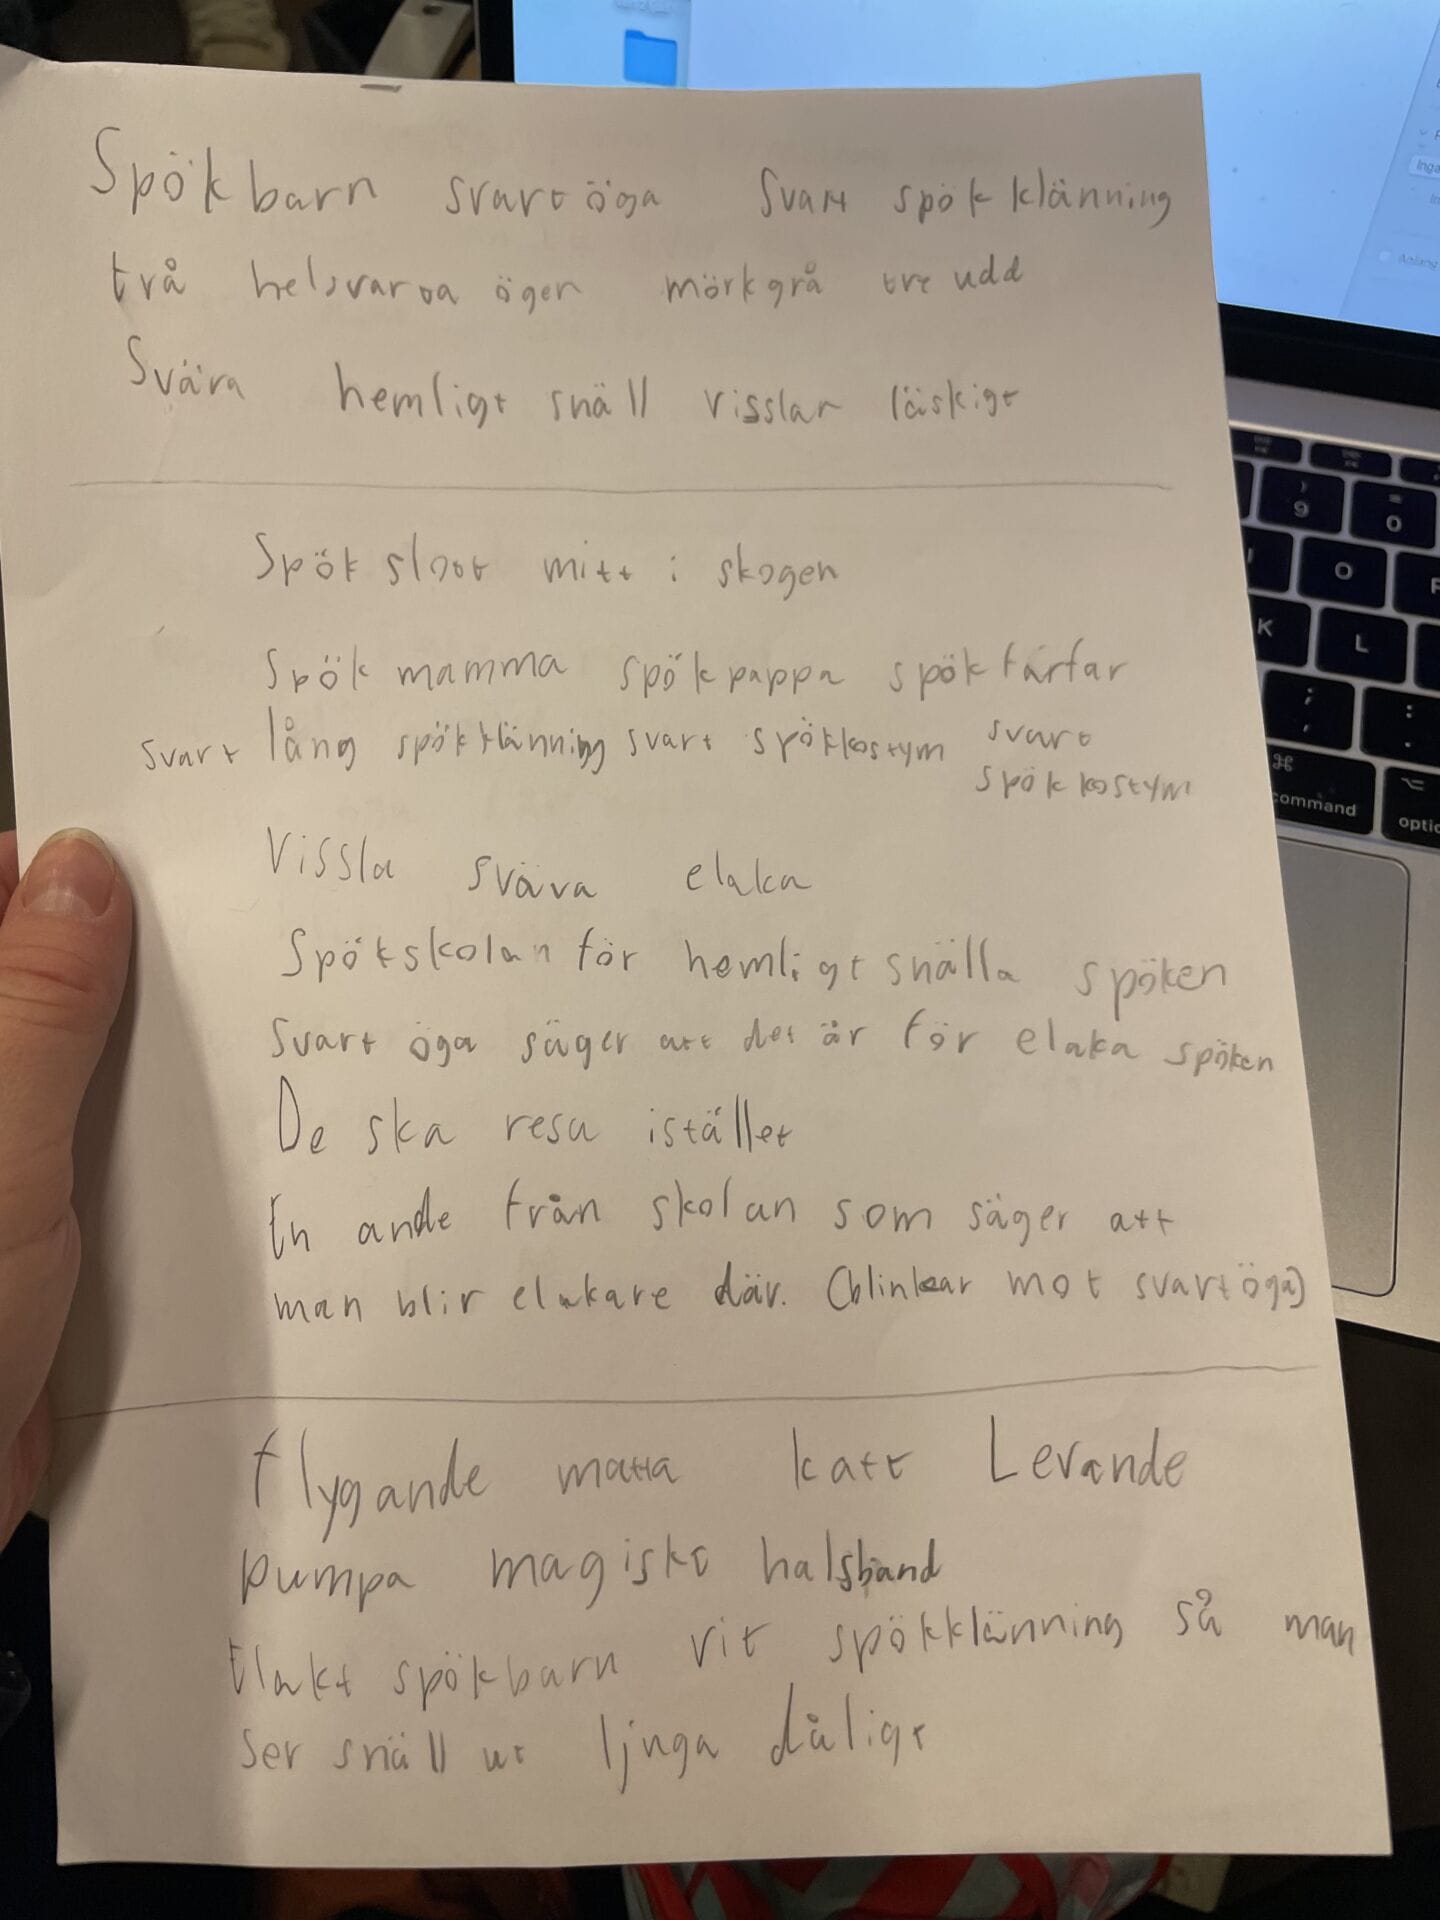 Spökbarn svartöga svart spökklänning
två helsvarta ögen mörkgrå treudd
Sväva hemligt snäll visslar läskigt
Spökslott mitt i skogen
Spökmamma spökpappa spökfarfar
svart lång spökklänning svart spökkostym svart
spökkostym
Vissla sväva elaka
Spökskolan för hemligt snälla spöken
Svartöga säger att det är för elaka spöken
De ska resa istället
En ande från skolan som säger att
man blir elakare där. (blinkar mot svartöga)
flygande matta katt Levande
pumpa magiskt halsband
Elakt spökbarn vit spökklänning så man
ser snäll ut ljuga dåligt
9
0
O
K
L
command